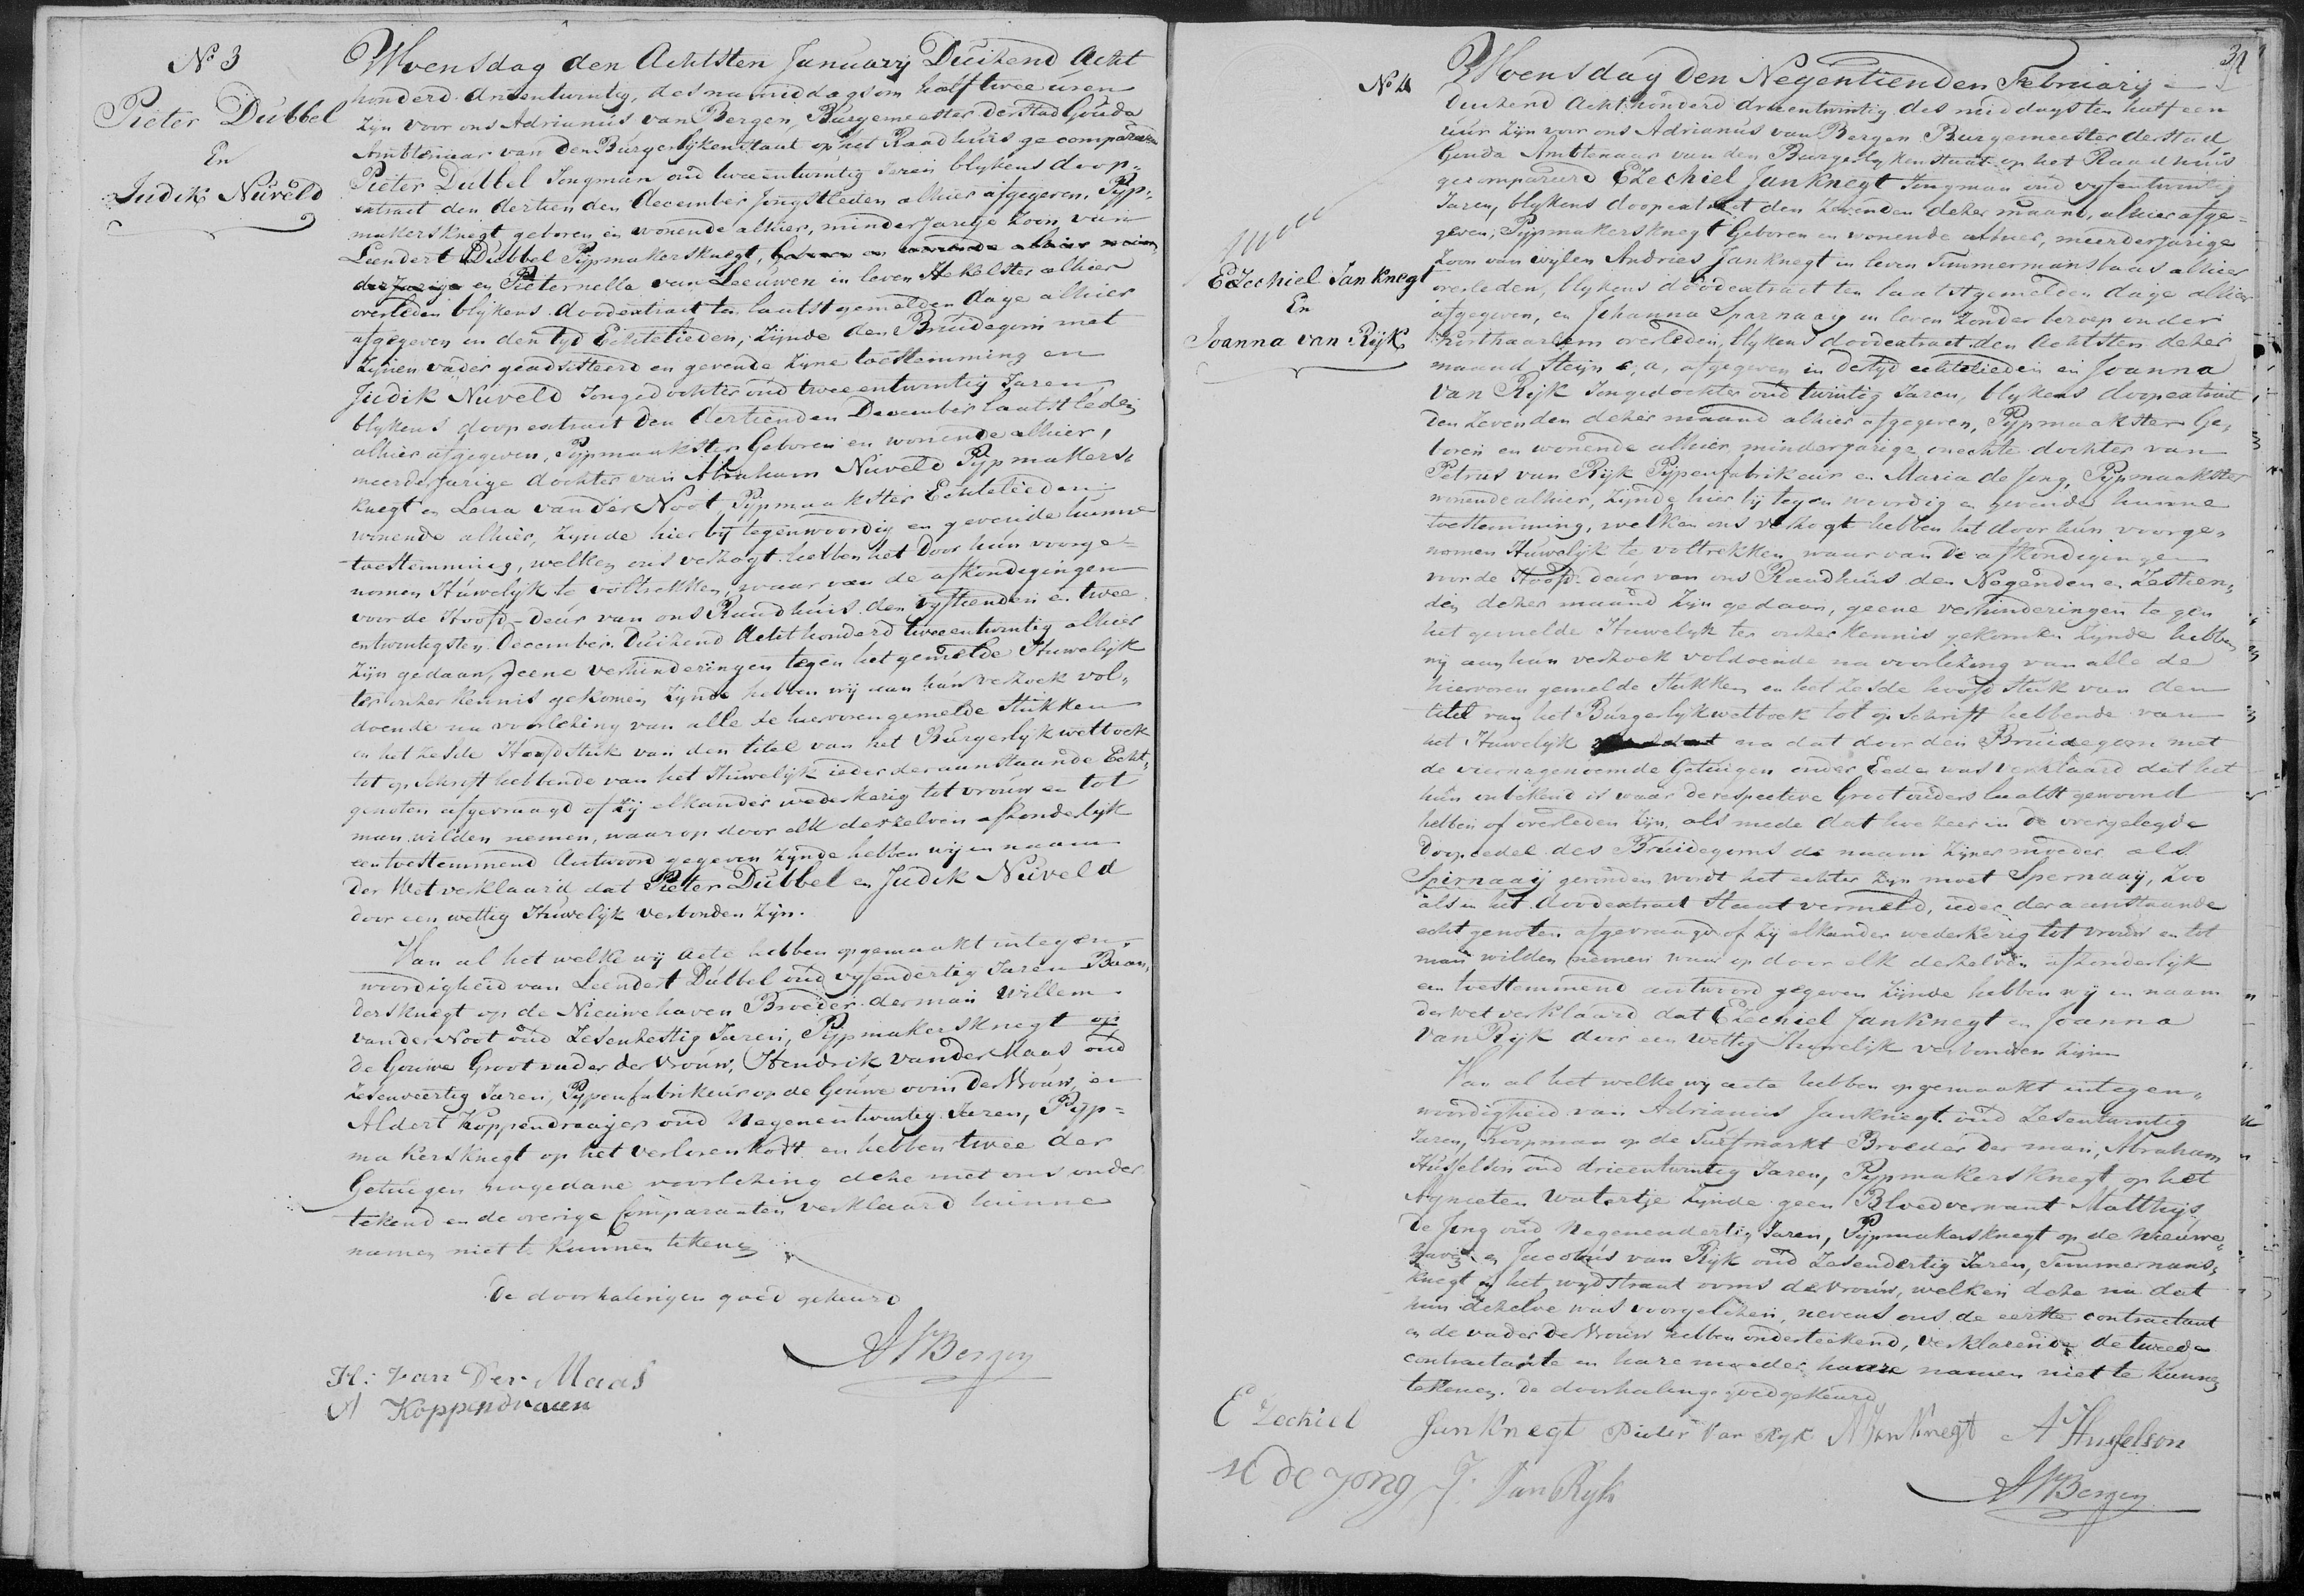 No 3
Pieter Dubbel
En
Judik Nuveld
Woensdag den Achtsten January Duizend Acht
honderd drieentwintig, des namiddags om half twee uren
zyn voor ons Adrianus van Bergen, Burgemeester der Stad Gouda
Ambtenaar van den Burgerlyken Staat op het Raadhuis gecompareerd
Pieter Dubbel Jongman oud tweeentwintig Jaren blykens doop„
extract den dertienden december Jongstleden alhier afgegeven, Pyp„
makersknegt geboren en wonende alhier, minderjarige Zoon van
Leendert Dubbel Pypmakersknegt, geboren en wonende alhier
en Pieternella van Leeuwen in leven Hekelster alhier
overleden blykens doodextract ten laatstgemelden dage alhier
afgegeven in den tyd Echtelieden, zynde den Bruidegom met
zynen vader geadsisteerd en gevende zyne toestemming en
Judik Nuveld Jongedochter oud tweeentwintig Jaren,
blykens doopextract den dertienden December laatstleden
alhier afgegeven, Pypmaakster Geboren en wonende alhier,
meerderjarige dochter van Abraham Nuveld Pypmakers„
knegt en Lena van der Noot, Pypmaakster Echtelieden
wonende alhier, zynde hier by tegenwoordig en gevende hunne
toestemming, welken ons verzogt hebben het door hun voorge„
nomen Huwelyk te voltrekken, waar van de afkondigingen
voor de Hoofd-deur van ons Raadhuis den vyftienden en twee
entwintigsten December Duizend Achthonderd tweeentwintig alhier
zyn gedaan, geene verhinderingen tegen het gemelde Huwelyk
ter onzer kennis gekomen zynde hebben wy aan hun verzoek vol„
doende na voorlezing van alle de hiervorengemelde stukken
en het zesde Hoofdstuk van den titel van het Burgerlyk wetboek
tot opschrift hebbende van het Huwelyk ieder der aanstaande Echt„
genoten afgevraagd of zy elkander wederkerig tot vrouw en tot
man wilden nemen, waarop door elk derzelven afzonderlyk
een toestemmend Antwoord gegeven zynde hebben wy in naam
der Wet verklaard dat Pieter Dubbel en Judik Nuveld
door een wettig Huwelyk verbonden zyn.
Van al het welke wy acte hebben opgemaakt in tegen„
woordigheid van Leendert Dubbel oud vyfendertig Jaren Baan„
dersknegt op de Nieuwehaven Broeder der man Willem
van der Noot oud Zesenzestig Jaren, Pypmakersknegt op
de Gouwe Grootvader der vrouw, Hendrik van der Maas oud
zesenveertig Jaren, Pypenfabrikeur op de Gouwe oom der Vrouw, en
Aldert Koppendraayer oud Negenentwintig Jaren, Pyp„
makersknegt op het verlorenkost en hebben twee der
Getuigen na gedane voorlezing deze met ons onder„
tekend en de overige Comparanten verklaard hunne
namen niet te kunnen tekenen
de doorhalingen goed gekeurd
AVBergen
H: van Der Maas
A Koppendraaien
No 4
Ezechiel Janknegt
En
Joanna van Ryk
Woensdag den Negentienden February
duizend Achthonderd drieentwintig des middags ten half een
uur zyn voor ons Adrianus van Bergen Burgemeester der Stad
Gouda Ambtenaar van den Burgerlyken Staat op het Raadhuis
gecompareerd Ezechiel Jan Knegt Jongman oud vyfentwintig
Jaren, blykens doopextract den zevenden dezer maand, alhier afge„
geven, Pypmakersknegt Geboren en wonende alhier, meerderjarige
Zoon van wylen Andries Janknegt in leven Timmermansbaas alhier
overleden, blykens doodextract ten laatstgemelden dage alhier
afgegeven, en Johanna Sparnaay in leven zonder beroep onder
Korthaarlem overleden, blykens doodextract den Achtsten dezer
maand Steyn c, a, afgegeven in destyd echtelieden en Joanna
van Ryk Jongedochter oud twintig Jaren, blykens doopextract
den zevenden dezer maand alhier afgegeven, Pypmaakster Ge„
boren en wonende alhier minderjarige onechte dochter van
Petrus van Ryk Pypenfabrikeur en Maria de Jong, Pypmaakster
wonende alhier, zynde hier by tegenwoordig en gevende hunne
toestemming, welken ons verzogt hebben het door hun voorge„
nomen Huwelyk te voltrekken, waar van de afkondigingen
voor de Hoofd-deur van ons Raadhuis den Negenden en zestien„
den dezer maand zyn gedaan, geene verhinderingen tegen
het gemelde Huwelyk ter onzer kennis gekomen zynde hebben
wy aan hun verzoek voldoende na voorlezing van alle de
hiervoren gemelde stukken en het zesde hoofdstuk van den
titel van het Burgerlyk wetboek tot opschrift hebbende van
het Huwelyk en dat door den Bruidegom met
de viernagenoemde Getuigen onder Eede was verklaard dat het
hun onbekend is waar de respective Grootouders laatst gewoond
hebben of overleden zyn als mede dat hoe zeer in de overgelegde
doopcedel des Bruidegoms de naam zyner moeder als
Spirnaaij gevonden wordt het echter zyn moet Spernaaij, zoo
als in het doodextract staat vermeld, ieder der aanstaande
echtgenoten afgevraagd of zy elkander wederkerig tot vrouw en tot
man wilden nemen waarop door elk derzelven afzonderlyk
een toestemmend antwoord gegeven zynde hebben wy in naam
der wet verklaard dat Ezechiel Janknegt en Joanna
van Ryk door een wettig Huwelyk verbonden zyn
Van al het welke wy acte hebben opgemaakt in tegen„
woordigheid van Adrianus Janknegt oud Zesentwintig
Jaren, Koopman op de Turfmarkt Broeder der man, Abraham
Husselson oud drieentwintig Jaren, Pypmakersknegt op het
watertje zynde geen Bloedverwant Matthys
de Jong oud Negenendertig Jaren, Pypmakersknegt op de Nieuwe„
haven en Jacobus van Ryk oud Zesendertig Jaren, Timmermans„
knegt in het wydstraat ooms der vrouw, welken deze na dat
hun dezelve was voorgelezen, nevens ons de eerste contractant
en de vader der Vrouw hebben ondertekend, verklarende de tweede
contractante en hare moeder haare namen niet te kunnen
tekenen. de doorhaling goedgekeurd
Ezechiel Jan Knegt Pieter Van Ryk A JanKnegt A Husselson
M de Jong J. Van Ryk
AVBergen